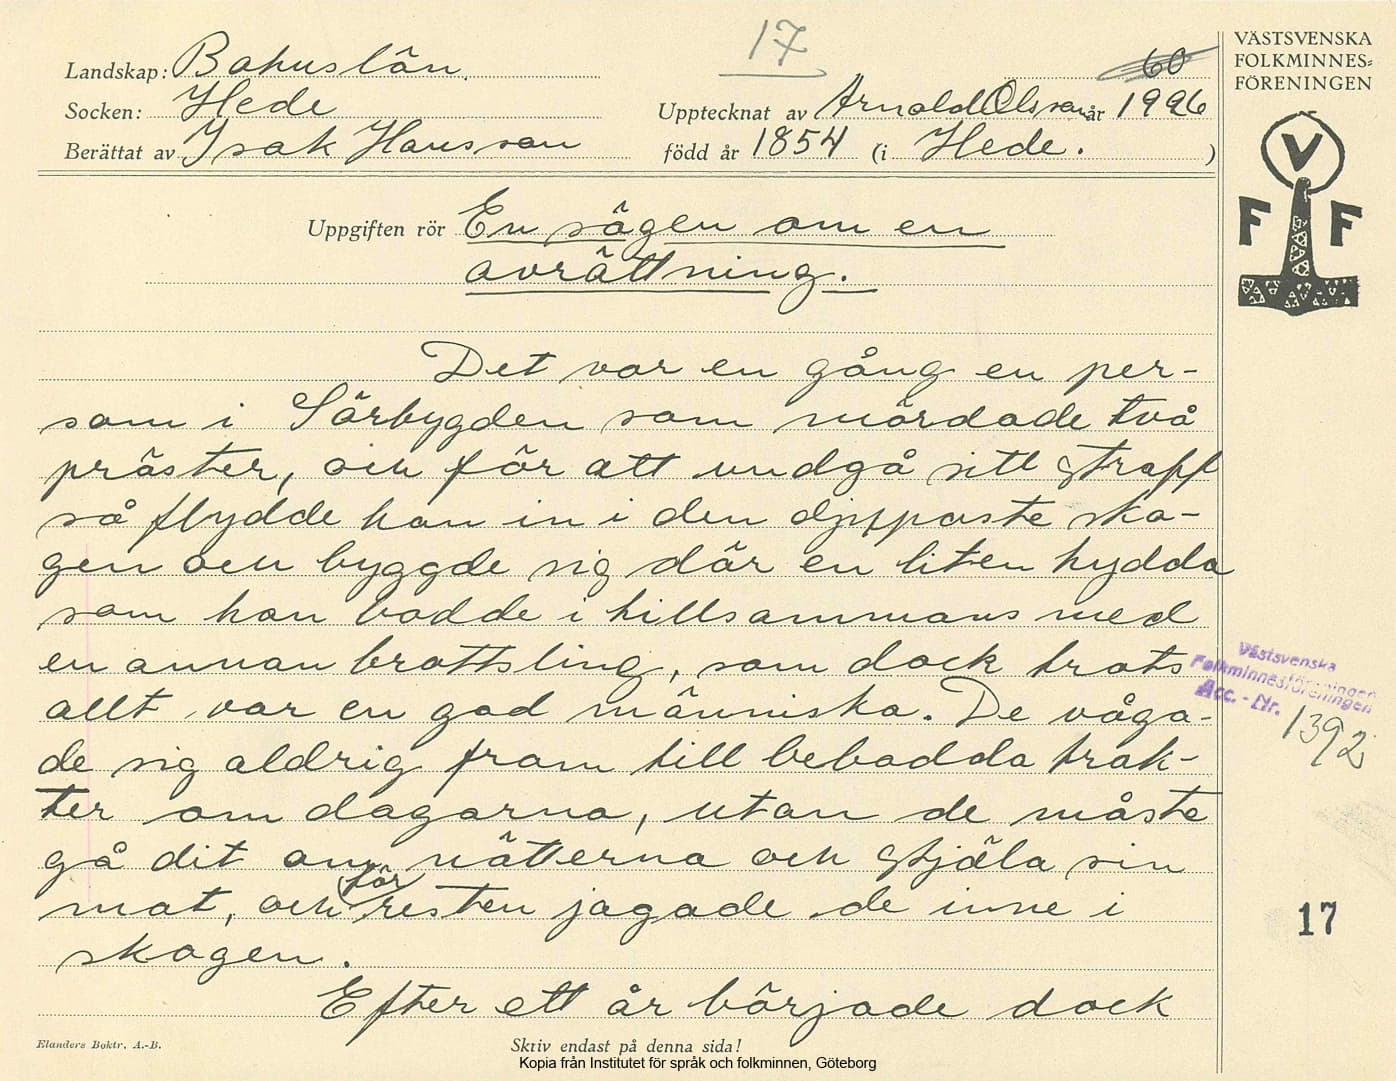 17
60
VÄSTSVENSKA
FOLKMINNES-
FÖRENINGEN
Landskap: Bohuslän.
Socken: Hede
Upptecknat av Arnold Olsson år 1926
Berättat av Isak Hansson född år 1854 (i Hede. )
V
F F
Uppgiften rör En sägen om en
avrättning.
Det var en gång en per-
son i Sörbygden som mördade två
präster, och för att undgå sitt straff
så flydde han in i den djuppaste sko-
gen och byggde sig där en liten hydda
som han bodde i tillsammans med
en annan brottsling, som dock trots
allt var en god människa. De våga-
de sig aldrig fram till bebodda trak-
ter om dagarna, utan de måste
gå dit om nätterna och stjäla sin
mat, och för resten jagade de inne i
skogen.
Efter ett år började dock
Västsvenska
Folkminnesföreningen
Acc. - Nr. 1392
17
Elanders Boktr. A.-B.
Skriv endast på denna sida!
Kopia från Institutet för språk och folkminnen, Göteborg